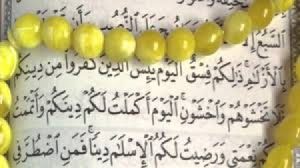 ٱلسَّبُعُ
بِٱلْأَزْلَٰمِ ۚ ذَٰلِكُمْ فِسْقٌ ۗ ٱلْيَوْمَ يَئِسَ ٱلَّذِينَ كَفَرُوا۟ مِن دِينِكُمْ
تَخْشَوْهُمْ وَٱخْشَوْنِ ۚ ٱلْيَوْمَ أَكْمَلْتُ لَكُمْ دِينَكُمْ وَأَتْمَمْتُ
نِعْمَتِى وَرَضِيتُ لَكُمُ ٱلْإِسْلَٰمَ دِينًا ۚ فَمَنِ ٱضْطُرَّ فِى